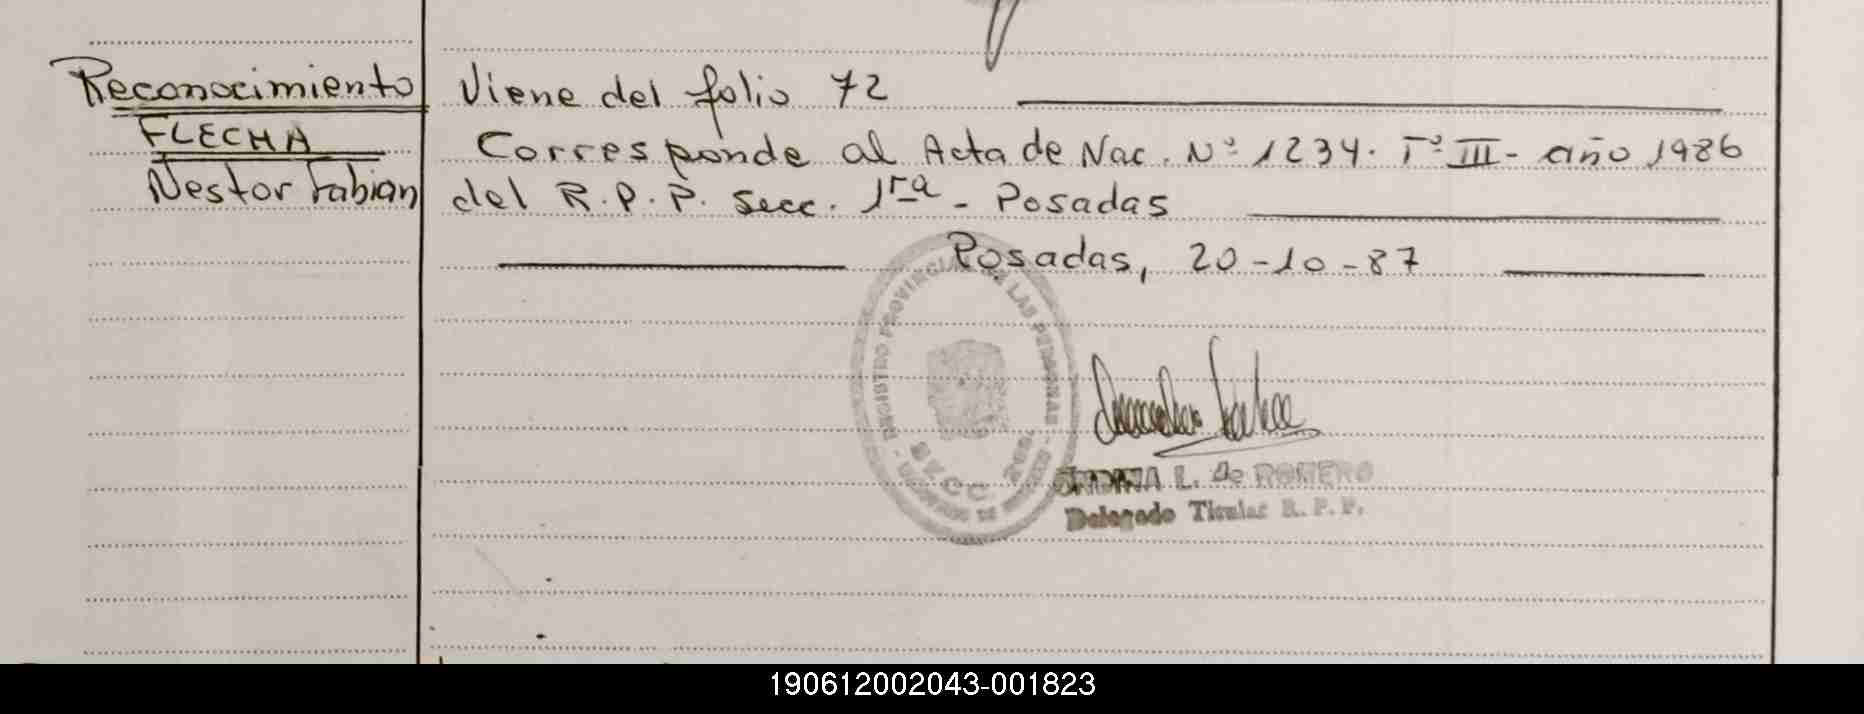 Reconocimiento
FLECHA
Nestor Fabian
Viene del folio 72
Corresponde al Acta de Nac. Nº 1234. Tº III - año 1986
del R.P.P. secc. 1ra - Posadas
Posadas, 20-10-87
REGISTRO PROVINCIAL DE LAS PERSONAS
L. de ROMERO
Delegado Titular R. P. P.
190612002043-001823